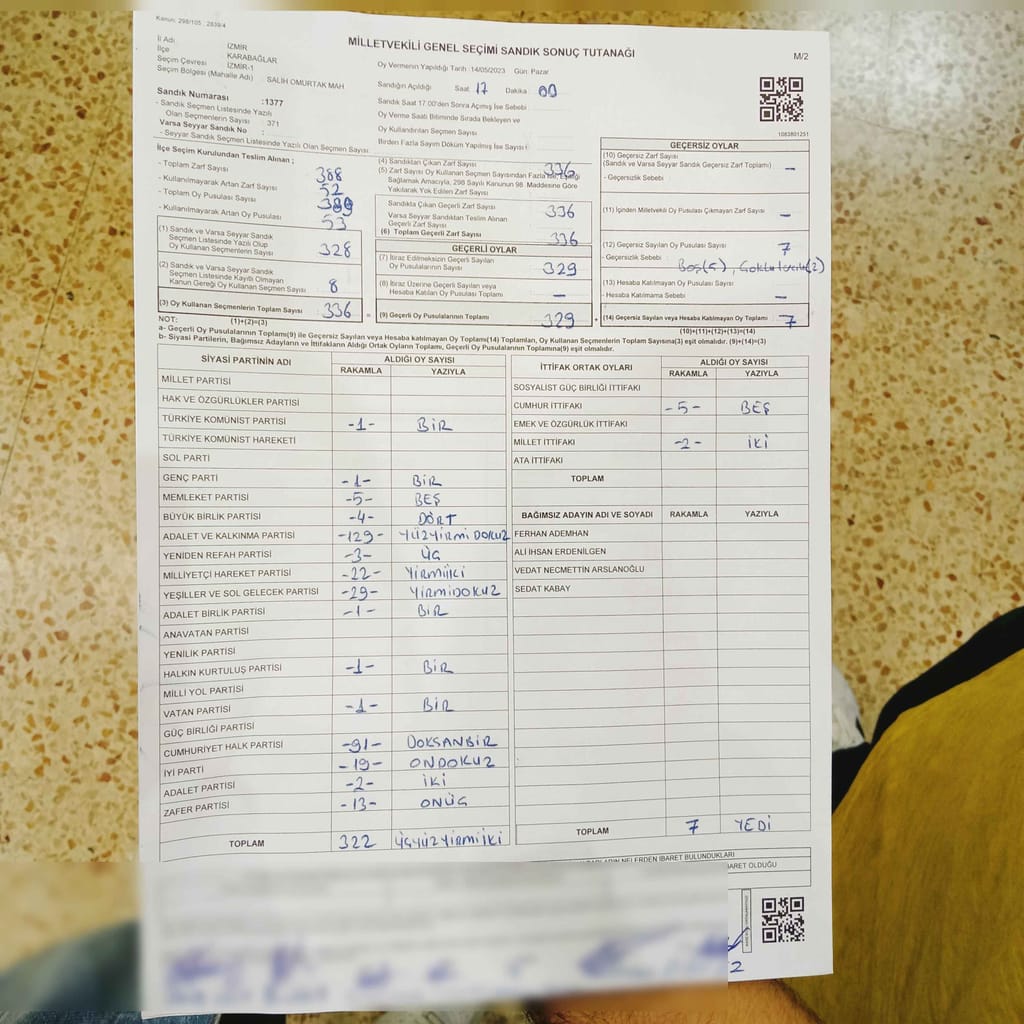 Kanun: 298/105 , 2839/4
MİLLETVEKİLİ GENEL SEÇİMİ SANDIK SONUÇ TUTANAĞI
M/2
İl Adı İZMİR
İlçe KARABAĞLAR
Seçim Çevresi İZMİR-1
Seçim Bölgesi (Mahalle Adı) SALİH OMURTAK MAH
Sandık Numarası :1377
- Sandık Seçmen Listesinde Yazılı
Olan Seçmenlerin Sayısı : 371
Varsa Seyyar Sandık No :
- Seyyar Sandık Seçmen Listesinde Yazılı Olan Seçmen Sayısı
Oy Vermenin Yapıldığı Tarih :14/05/2023 Gün: Pazar
Sandığın Açıldığı Saat 17 Dakika 00
Sandık Saat 17.00'den Sonra Açılmış İse Sebebi
Oy Verme Saati Bitiminde Sırada Bekleyen ve
Oy Kullandırılan Seçmen Sayısı
Birden Fazla Sayım Döküm Yapılmış İse Sayısı :
1083801251
İlçe Seçim Kurulundan Teslim Alınan ;
- Toplam Zarf Sayısı 388
- Kullanılmayarak Artan Zarf Sayısı 52
- Toplam Oy Pusulası Sayısı 389
- Kullanılmayarak Artan Oy Pusulası 53
(1) Sandık ve Varsa Seyyar Sandık
Seçmen Listesinde Yazılı Olup
Oy Kullanan Seçmenlerin Sayısı 328
(2) Sandık ve Varsa Seyyar Sandık
Seçmen Listesinde Kayıtlı Olmayan
Kanun Gereği Oy Kullanan Seçmen Sayısı 8
(3) Oy Kullanan Seçmenlerin Toplam Sayısı 336 =
(1)+(2)=(3)
(4) Sandıktan Çıkan Zarf Sayısı 336
(5) Zarf Sayısı Oy Kullanan Seçmen Sayısından Fazla İse, Eşitliği
Sağlamak Amacıyla, 298 Sayılı Kanunun 98. Maddesine Göre
Yakılarak Yok Edilen Zarf Sayısı
Sandıkta Çıkan Geçerli Zarf Sayısı 336
Varsa Seyyar Sandıktan Teslim Alınan
Geçerli Zarf Sayısı
(6) Toplam Geçerli Zarf Sayısı 336
GEÇERLİ OYLAR
(7) İtiraz Edilmeksizin Geçerli Sayılan
Oy Pusulalarının Sayısı 329
(8) İtiraz Üzerine Geçerli Sayılan veya
Hesaba Katılan Oy Pusulası Toplamı —
(9) Geçerli Oy Pusulalarının Toplamı 329 +
GEÇERSİZ OYLAR
(10) Geçersiz Zarf Sayısı
(Sandık ve Varsa Seyyar Sandık Geçersiz Zarf Toplamı) —
- Geçersizlik Sebebi
(11) İçinden Milletvekili Oy Pusulası Çıkmayan Zarf Sayısı —
(12) Geçersiz Sayılan Oy Pusulası Sayısı 7
- Geçersizlik Sebebi : Boş(5),
(13) Hesaba Katılmayan Oy Pusulası Sayısı
- Hesaba Katılmama Sebebi —
(14) Geçersiz Sayılan veya Hesaba Katılmayan Oy Toplamı 7
(10)+(11)+(12)+(13)=(14)
NOT:
a- Geçerli Oy Pusulalarının Toplamı(9) ile Geçersiz Sayılan veya Hesaba katılmayan Oy Toplamı(14) Toplamları, Oy Kullanan Seçmenlerin Toplam Sayısına(3) eşit olmalıdır. (9)+(14)=(3)
b- Siyasi Partilerin, Bağımsız Adayların ve İttifakların Aldığı Ortak Oyların Toplamı, Geçerli Oy Pusulalarının Toplamına(9) eşit olmalıdır.
SİYASİ PARTİNİN ADI ALDIĞI OY SAYISI
RAKAMLA YAZIYLA
MİLLET PARTİSİ
HAK VE ÖZGÜRLÜKLER PARTİSİ
TÜRKİYE KOMÜNİST PARTİSİ -1- BİR
TÜRKİYE KOMÜNİST HAREKETİ
SOL PARTİ
GENÇ PARTİ -1- BİR
MEMLEKET PARTİSİ -5- BEŞ
BÜYÜK BİRLİK PARTİSİ -4- DÖRT
ADALET VE KALKINMA PARTİSİ -129- YÜZYİRMİ DOKUZ
YENİDEN REFAH PARTİSİ -3- ÜÇ
MİLLİYETÇİ HAREKET PARTİSİ -22- YİRMİİKİ
YEŞİLLER VE SOL GELECEK PARTİSİ -29- YİRMİDOKUZ
ADALET BİRLİK PARTİSİ -1- BİR
ANAVATAN PARTİSİ
YENİLİK PARTİSİ
HALKIN KURTULUŞ PARTİSİ -1- BİR
MİLLİ YOL PARTİSİ
VATAN PARTİSİ -1- BİR
GÜÇ BİRLİĞİ PARTİSİ
CUMHURİYET HALK PARTİSİ -91- DOKSANBİR
İYİ PARTİ -19- ONDOKUZ
ADALET PARTİSİ -2- İKİ
ZAFER PARTİSİ -13- ONÜÇ
TOPLAM 322 ÜÇYÜZYİRMİİKİ
İTTİFAK ORTAK OYLARI ALDIĞI OY SAYISI
RAKAMLA YAZIYLA
SOSYALİST GÜÇ BİRLİĞİ İTTİFAKI
CUMHUR İTTİFAKI -5- BEŞ
EMEK VE ÖZGÜRLÜK İTTİFAKI
MİLLET İTTİFAKI -2- İKİ
ATA İTTİFAKI
TOPLAM
BAĞIMSIZ ADAYIN ADI VE SOYADI RAKAMLA YAZIYLA
FERHAN ADEMHAN
ALİ İHSAN ERDENİLGEN
VEDAT NECMETTİN ARSLANOĞLU
SEDAT KABAY
TOPLAM 7 YEDİ
NELERDEN İBARET BULUNDUKLARI
İBARET OLDUĞU
2